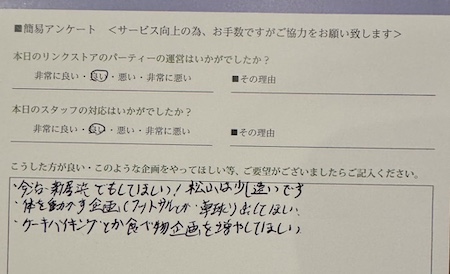 ■簡易アンケート <サービス向上の為、お手数ですがご協力をお願い致します>
本日のリンクストアのパーティーの運営はいかがでしたか？
非常に良い・良い・悪い・非常に悪い ■その理由
本日のスタッフの対応はいかがでしたか？
非常に良い・良い・悪い・非常に悪い ■その理由
こうした方が良い・このような企画をやってほしい等、ご要望がございましたらご記入ください。
・今治・新居浜でもしてほしい！松山は少し遠いです
・体を動かす企画(フットサルとか卓球)出してほしい
・ケーキバイキングとか食べ物企画を増やしてほしい